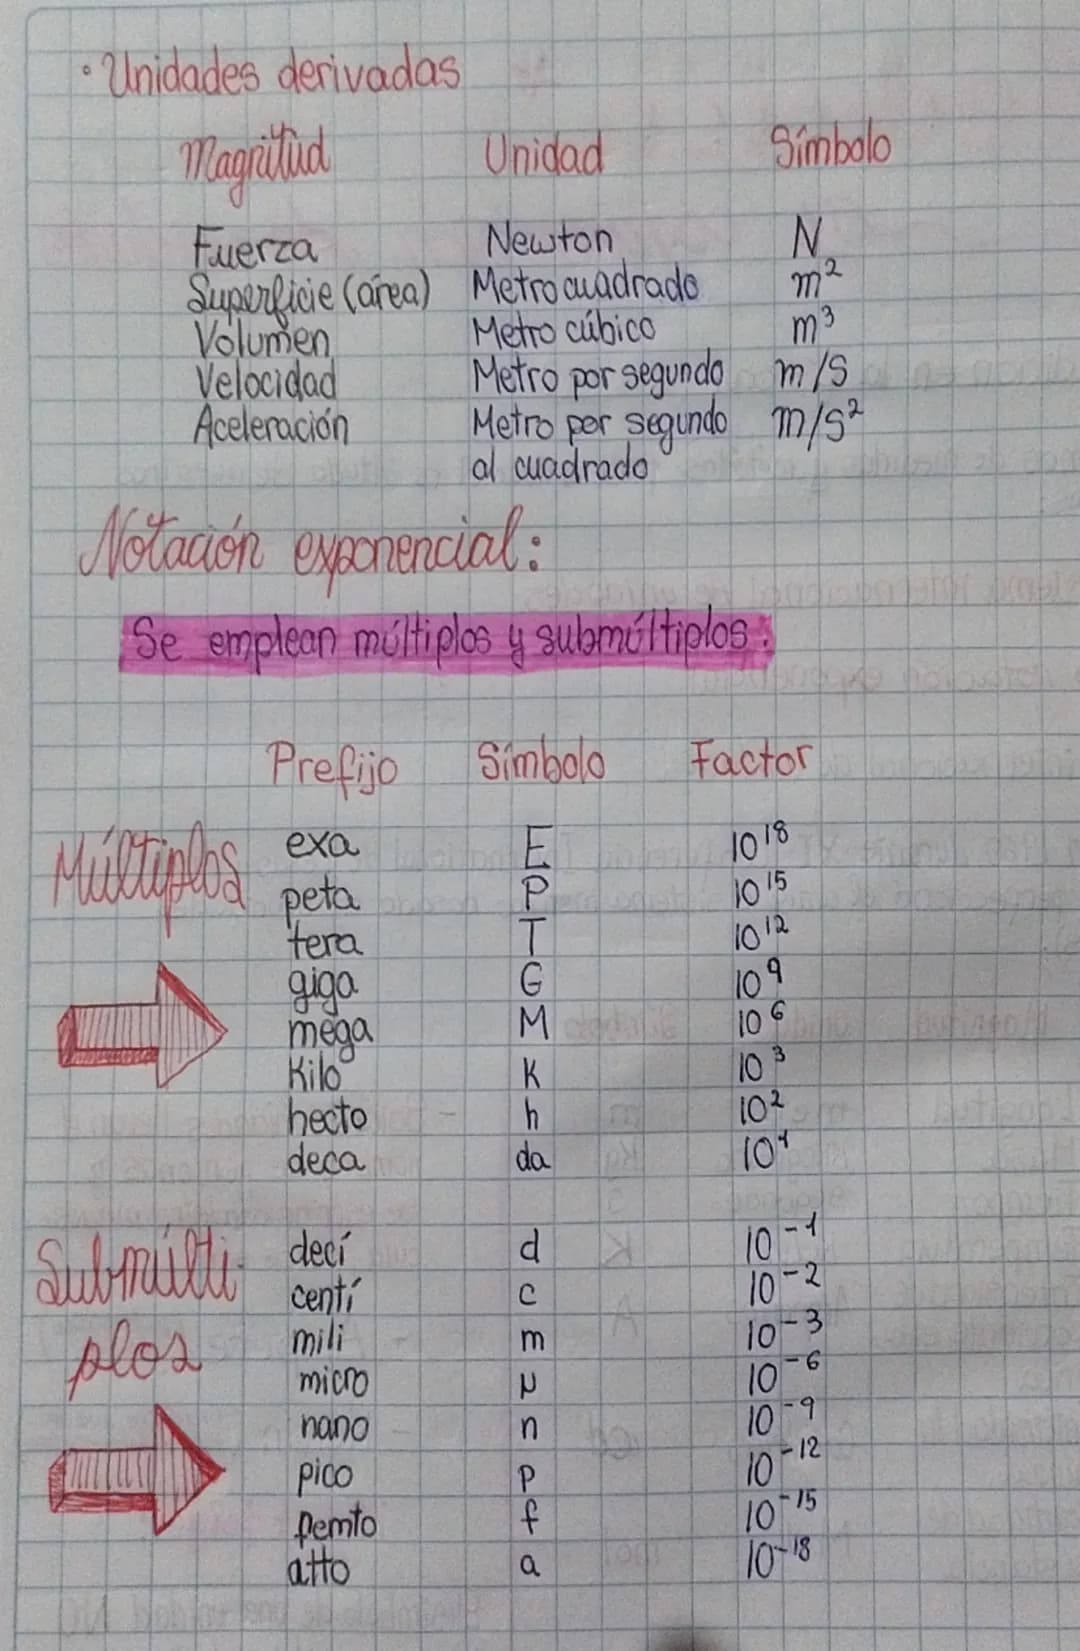 • Unidades derivadas
Magnitud Unidad Símbolo
Fuerza Newton N
Superficie (área) Metro cuadrado m²
Volumen Metro cúbico m³
Velocidad Metro por segundo m/s
Aceleración Metro por segundo m/s²
al cuadrado
Notación exponencial:
Se emplean múltiplos y submúltiplos:
Prefijo Símbolo Factor
Múltiplos
exa E 10¹⁸
peta P 10¹⁵
tera T 10¹²
giga G 10⁹
mega M 10⁶
Kilo K 10³
hecto h 10²
deca da 10¹
Submúlti-
plos
decí d 10⁻¹
centí c 10⁻²
mili m 10⁻³
micro µ 10⁻⁶
nano n 10⁻⁹
pico p 10⁻¹²
femto f 10⁻¹⁵
atto a 10⁻¹⁸